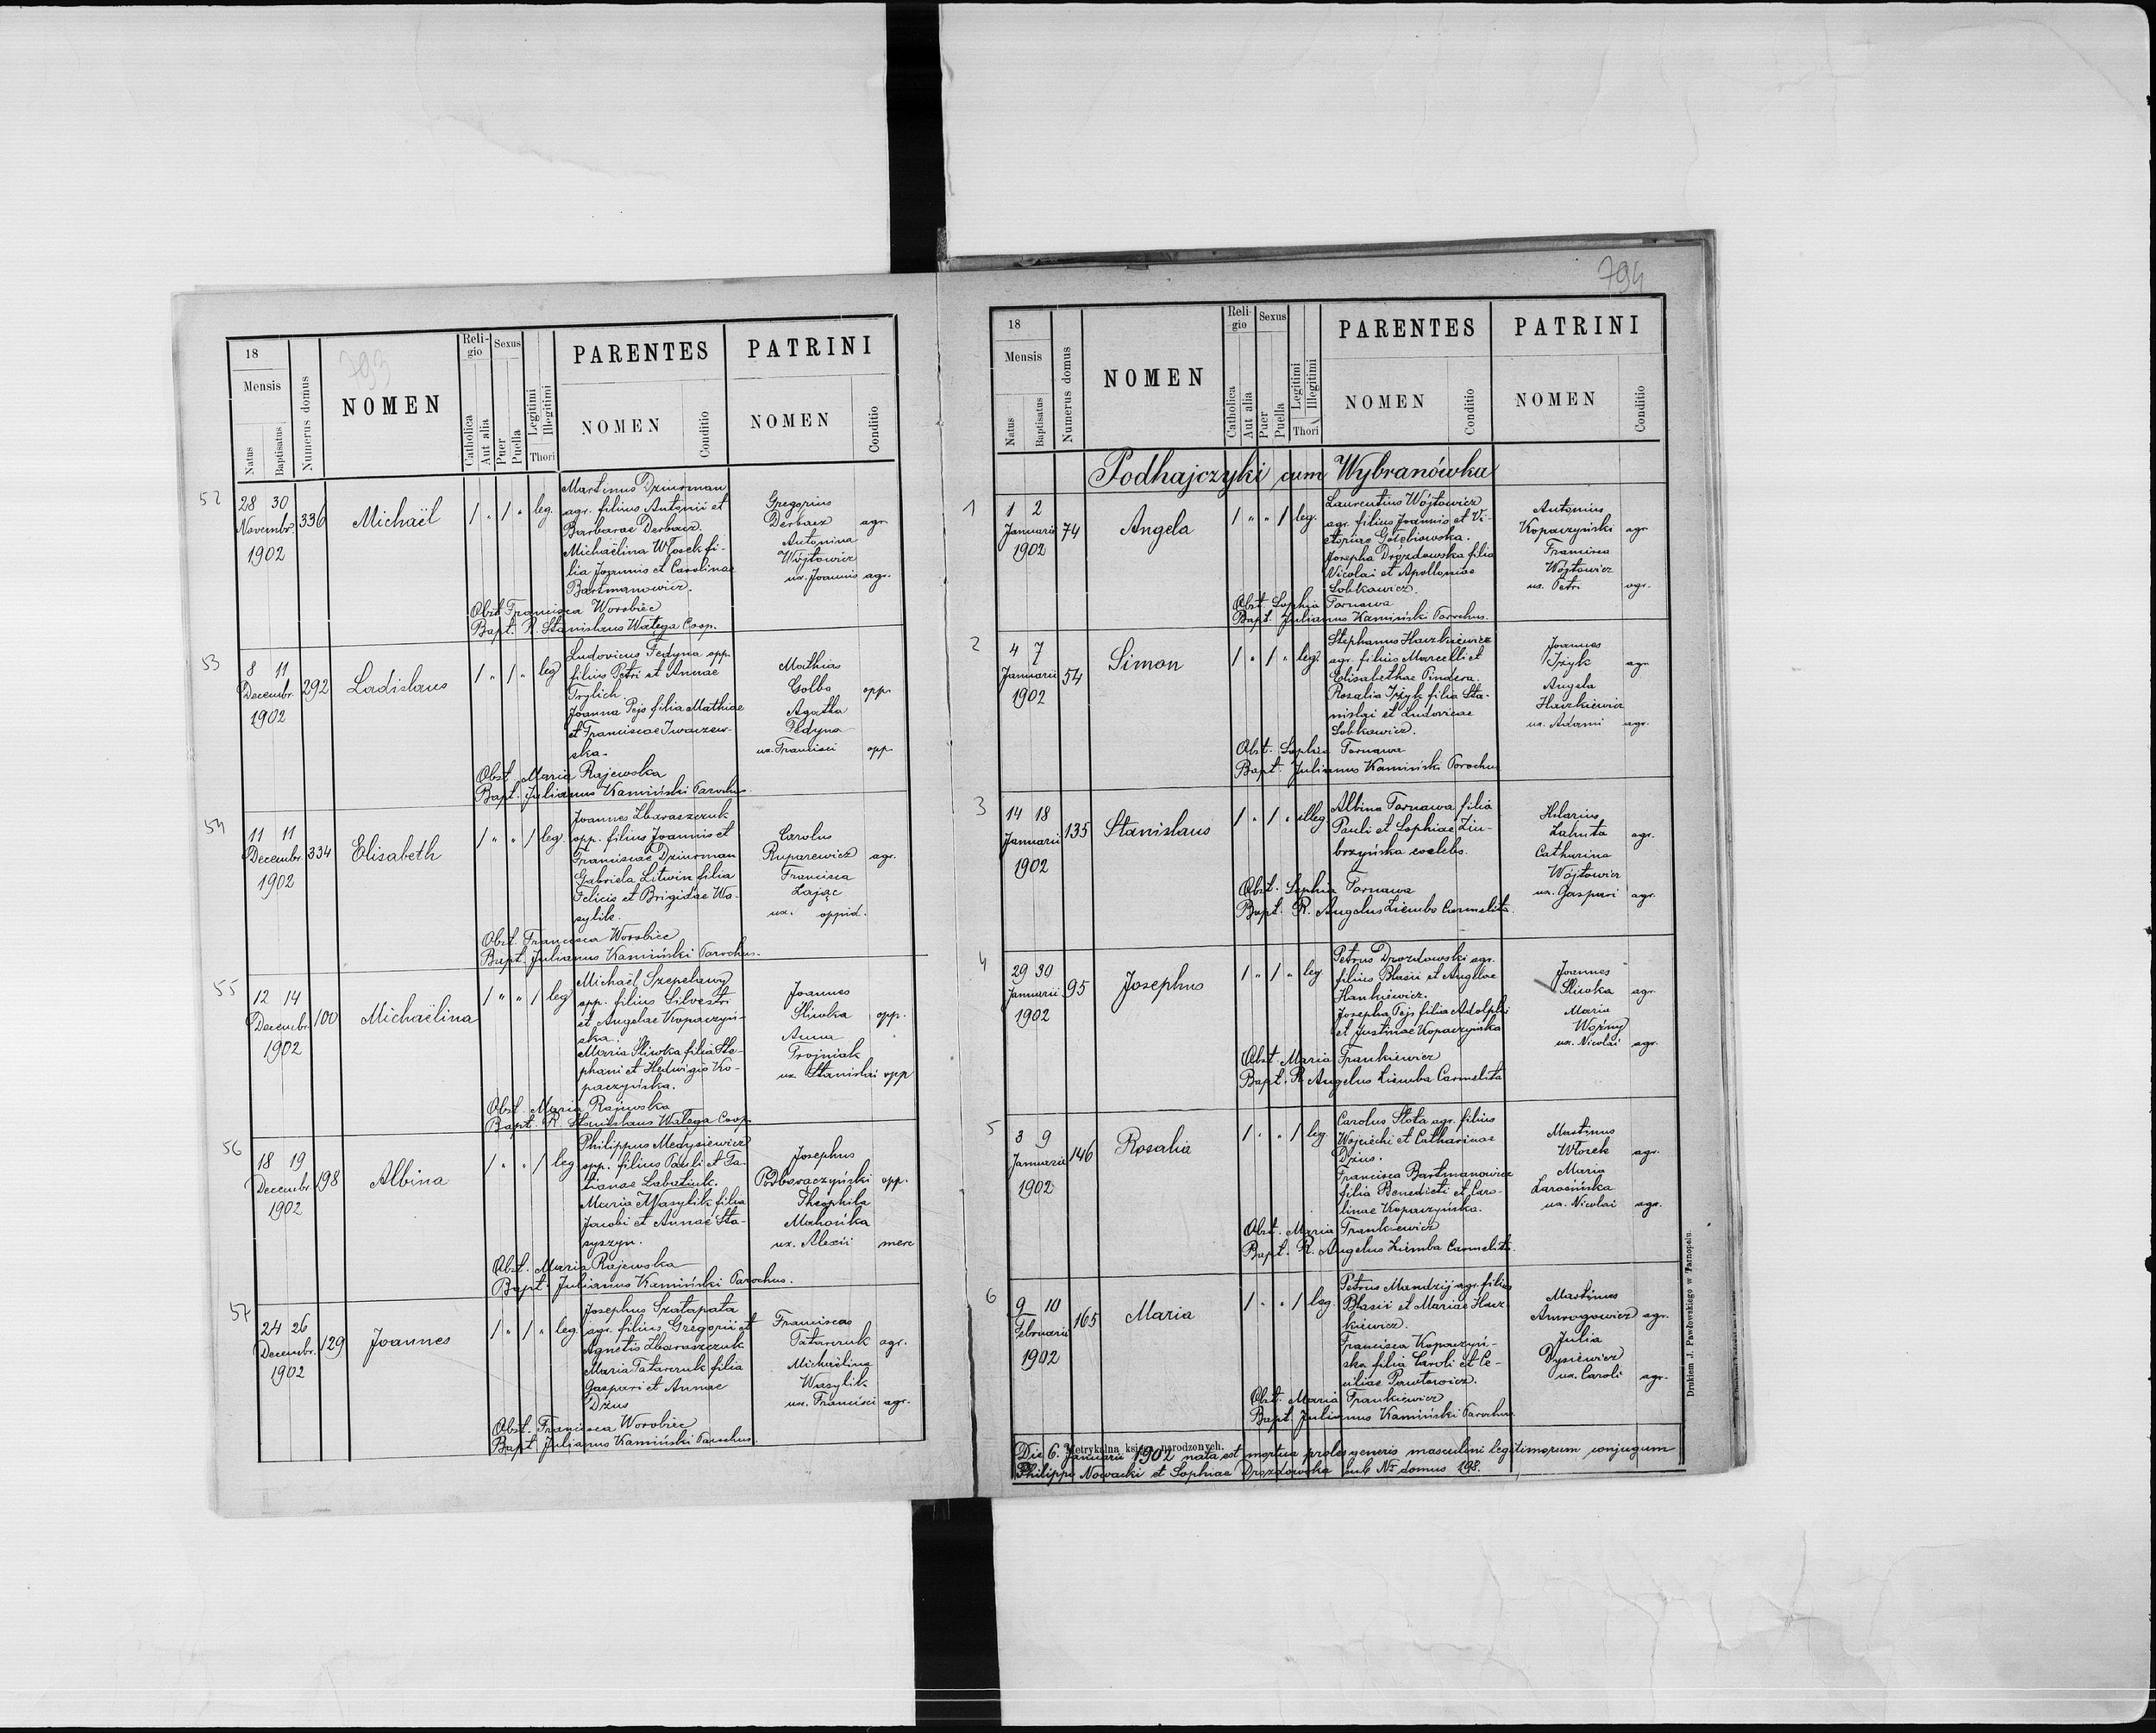 793
18
Mensis
Natus
Baptisatus
Numerus domus
NOMEN
Reli-
gio
Catholica
Aut alia
Sexus
Puer
Puella
Legitimi
Illegitimi
Thori
PARENTES
NOMEN
Conditio
PATRINI
NOMEN
Conditio
52
28 30
Novembr.
1902
336
Michaël
leg.
Martinus Dziurman
agr. filius Antonii et
Barbarae Derbacz.
Michaëlina Włosek fi-
lia Joannis et Carolinae
Bartmanowicz.
Gregorius
Derbacz agr.
Antonina
Wójtowicz
ux. Joannis agr.
Obst. Francisca Worobiec
Bapt. R. Stanislaus Wałęga Coop.
53
8 11
Decembr.
1902
292
Ladislaus
leg
Ludovicus Fedyna opp.
filius Petri et Annae
Trylich.
Joanna Pejs filia Mathiae
et Franciscae Iwaszew-
ska.
Mathias
Golbo opp.
Agatha
Fedyna
ux. Francisci opp.
Obst. Maria Rajewska
Bapt. Julianus Kamiński Parochus
54
11 11
Decembr.
1902
334
Elisabeth
leg.
Joannes Zbaraszczuk
opp. filius Joannis et
Franciscae Dziurman
Gabriela Litwin filia
Felicis et Brigidae Wa-
sylik.
Carolus
Ruparewicz agr.
Francisca
Zając
ux. oppid.
Obst. Francisca Worobiec
Bapt. Julianus Kamiński Parochus.
55
12 14
Decembr.
1902
100
Michaëlina
leg
Michaël Szepelawy
opp. filius Silvestri
et Angelae Kopaczyń-
ska.
Maria Śliwka filia Ste-
phani et Hedwigis Ko-
paczyńska.
Joannes
Śliwka opp.
Anna
Trojniak
ux. Stanislai opp
Obst. Maria Rajewska
Bapt. R. Stanislaus Wałęga Coop.
56
18 19
Decembr.
1902
198
Albina
leg.
Philippus Medysiewicz
opp. filius Pauli et Ta-
tianae Labatiuk.
Maria Wasylik filia
Jacobi et Annae Sta-
syszyn.
Josephus
Podboraczyński opp.
Theophila
Mahońka
ux. Alexii merc
Obst. Maria Rajewska
Bapt. Julianus Kamiński Parochus.
57
24 26
Decembr.
1902
129
Joannes
leg.
Josephus Szatapata
agr. filius Gregorii et
Agnetis Zbaraszczuk
Maria Tatarczuk filia
Gaspari et Annae
Dżus
Franciscus
Tatarczuk agr.
Michaëlina
Wasylik
ux. Francisci agr.
Obst. Francisca Worobiec
Bapt. Julianus Kamiński Parochus.
794
18
Mensis
Natus
Baptisatus
Numerus domus
NOMEN
Reli-
gio
Catholica
Aut alia
Sexus
Puer
Puella
Legitimi
Illegitimi
Thori
PARENTES
NOMEN
Conditio
PATRINI
NOMEN
Conditio
Podhajczyki cum Wybranówka
1
1 2
Januarii
1902
74
Angela
leg.
Laurentius Wójtowicz
agr. filius Joannis et Vi-
ctoriae Gołębiowska.
Josepha Drozdowska filia
Nicolai et Apolloniae
Sobkowicz.
Antonius
Kopaczyński agr
Francisca
Wójtowicz
ux. Petri agr.
Obst. Sophia Tarnawa
Bapt. Julianus Kamiński Parochus.
2
4 7
Januarii
1902
54
Simon
leg.
Stephanus Haczkiewicz
agr. filius Marcelli et
Elisabethae Pindera.
Rosalia Iżyk filia Sta-
nislai et Ludovicae
Sobkowicz.
Joannes
Iżyk agr
Angela
Haczkiewicz
ux. Adami agr.
Obst. Sophia Tarnawa
Bapt. Julianus Kamiński Parochus
3
14 18
Januarii
1902
135
Stanislaus
illeg.
Albina Tarnawa filia
Pauli et Sophiae Ziu-
brzyńska coelebs.
Hilarius
Zahuta agr.
Catharina
Wójtowicz
ux. Gaspari agr.
Obst. Sophia Tarnawa
Bapt. R. Angelus Ziemba Carmelita.
4
29 30
Januarii
1902
95
Josephus
leg.
Petrus Drozdowski agr.
filius Blasii et Angelae
Hankiewicz.
Josepha Pejs filia Adolphi
et Justinae Kopaczyńska
Joannes
Śliwka agr.
Maria
Woźny
ux. Nicolai agr.
Obst. Maria Frankiewicz
Bapt. R. Angelus Ziemba Carmelita
5
3 9
Januarii
1902
146
Rosalia
leg.
Carolus Słota agr. filius
Wojciechi et Catharinae
Dżus.
Francisca Bartmanowicz
filia Benedicti et Caro-
linae Kopaczyńska.
Martinus
Włosek agr.
Maria
Zarosińska
ux. Nicolai agr.
Obst. Maria Frankiewicz
Bapt. R. Angelus Ziemba Carmelita.
6
9 10
Februarii
1902
165
Maria
leg.
Petrus Mandzij agr. filius
Blasii et Mariae Hacz-
kiewicz.
Francisca Kopaczyń-
ska filia Caroli et Ce-
ciliae Pawłowicz.
Martinus
Amrogowicz agr.
Julia
Dysiewicz
ux. Caroli agr.
Obst. Maria Frankiewicz
Bapt. Julianus Kamiński Parochus.
Metrykalna księga narodzonych.
Die 6. Januarii 1902 nata est mortua proles generis masculini legitimorum conjugum
Philippi Nowacki et Sophiae Drozdowska sub Nr domus 198.
Drukiem J. Pawłowskiego w Tarnopolu.